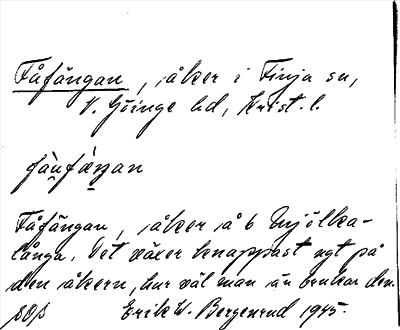 Fåfängan, åker i Finja sn,
V. Göinge hd, Krist. l.
Fåfängan, åker å 6 Mjölka-
långa. Det växer knappast ngt på
den åkern, hur väl man än brukar den.
Erik W. Bergenrud 1945.